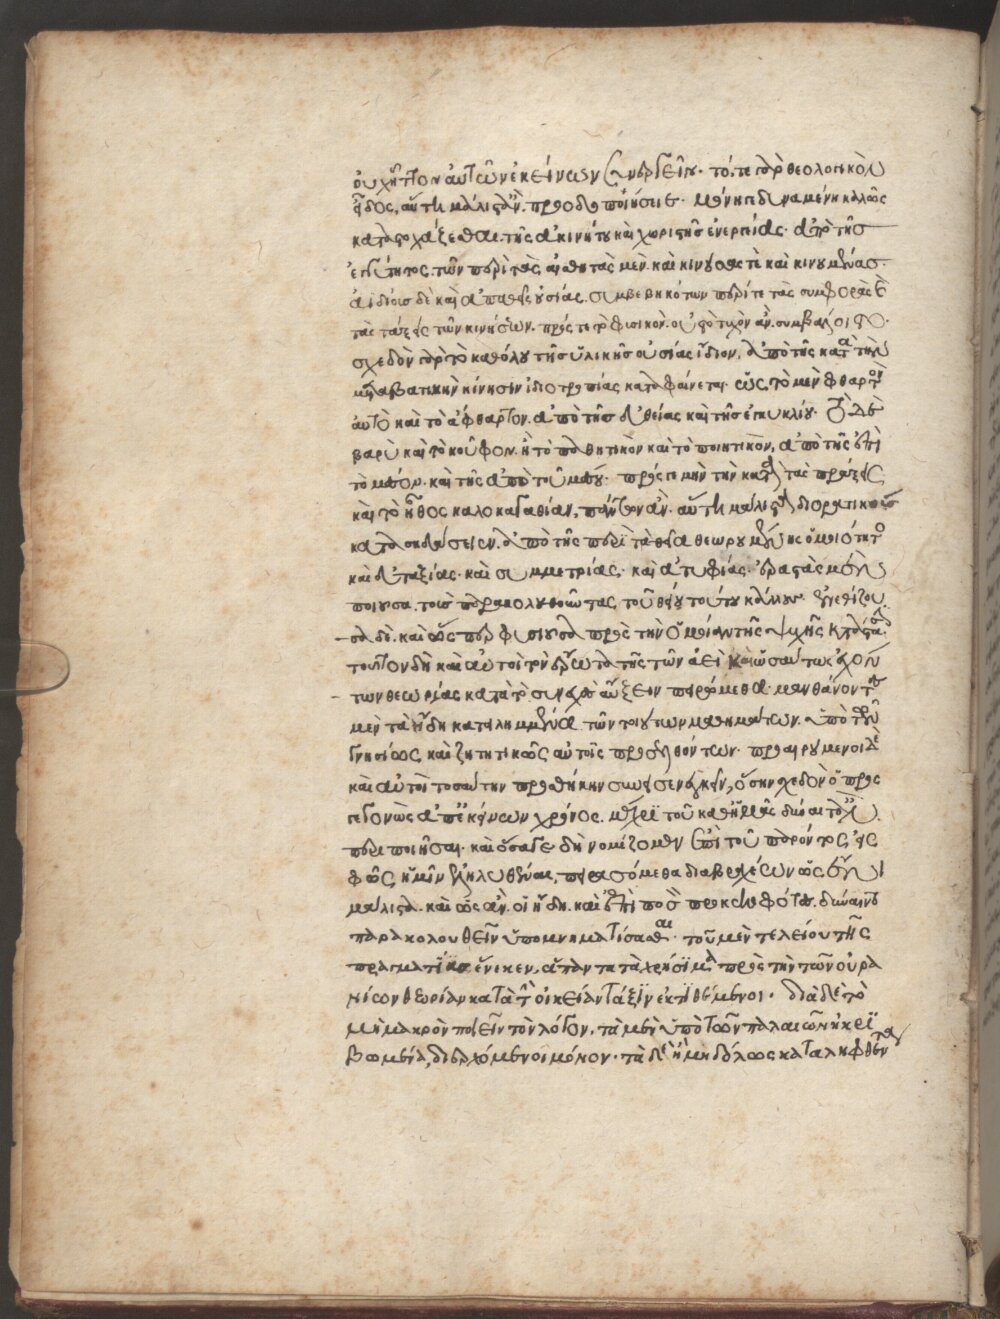 οὐχ ἧττον αὐτῶν ἐκείνων συνεργεῖν· τό, τε γὰρ θεολογικὸν
εἶδος, αὕτη μάλιστ' ἂν προοδοποιήσειε· μόνη γε δυναμένη καλῶς
καταστοχάζεσθαι τῆς ἀκινήτου καὶ χωριστῆς ἐνεργείας· ἀπὸ τῆς
ἐγγύτητος τῶν περὶ τὰς αἰσθητὰς μὲν καὶ κινούσας τὲ καὶ κινουμένας·
ἀϊδίους δὲ καὶ ἀπαθεῖς οὐσίας συμβεβηκότων περί τε τὰς φορὰς καὶ
τὰς τάξεις τῶν κινήσεων· πρός τε τὸ φυσικὸν, οὐ τὸ τυχὸν ἂν συμβάλοιτο·
σχεδὸν γὰρ τὸ καθόλου τῆς ὑλικῆς οὐσίας ἴδιον, ἀπὸ τῆς κατὰ τὴν
μεταβατικὴν κίνησιν ἰδιοτροπίας καταφαίνεται· ὡς, τὸ μὲν φθαρτὸν
αὐτὸ καὶ τὸ ἄφθαρτον, ἀπὸ τῆς εὐθείας καὶ τῆς ἐγκυκλίου· τὸ δὲ
βαρὺ καὶ τὸ κοῦφον, ἢ τὸ παθητικὸν καὶ τὸ ποιητικὸν, ἀπὸ τῆς ἐπὶ
τὸ μέσον· καὶ τῆς ἀπὸ τοῦ μέσου· πρός γε μὴν τὴν κατὰ τὰς πράξεις
καὶ τὸ ἦθος καλοκαγαθίαν, πάντων ἂν αὕτη μάλιστα διορατικοὺς
κατασκευάσειεν, ἀπὸ τῆς περὶ τὰ θεῖα θεωρουμένης ὁμοιότητος
καὶ εὐταξίας· καὶ συμμετρίας· καὶ ἀτυφίας· ἐραστὰς μὲν
ποιοῦσα τοὺς παρακολουθοῦντας τοῦ θείου τούτου κάλλους· ἐνεθίζου
σα δὲ, καὶ ὥσπερ φυσιοῦσα πρὸς τὴν ὁμοίαν τῆς ψυχῆς κατάστασιν
τοῦτον δὴ καὶ αὐτοὶ τὸν ἔρωτα τῆς τῶν ἀεὶ καὶ ὡσαύτως ἐχόν
των θεωρίας κατὰ τὸ συνεχὲς αὔξειν πειρώμεθα· μανθάνοντες
μὲν τὰ ἤδη κατειλημμένα τῶν τοιούτων μαθημάτων ὑπὸ τῶν
γνησίως καὶ ζητητικῶς αὐτοῖς προσελθόντων· προαιρούμενοι δὲ
καὶ αὐτοὶ τοσαύτην προσθήκην συνεισενεγκεῖν, ὅσην σχεδὸν ὁ προσ
γεγονὼς ἀπ' ἐκείνων χρόνος μέχρι τοῦ καθ' ἡμᾶς δύναιτο ἂν
περιποιῆσαι· καὶ ὅσα γε δὴ νομίζομεν ἐπὶ τοῦ παρόντος εἰς
φῶς ἡμῖν ἐληλυθέναι, πειρασόμεθα διὰ βραχέων ὡς ἔνι
μάλιστα· καὶ ὡς ἂν οἱ ἤδη καὶ ἐπὶ ποσὸν προκεκοφότες δύναιντο
παρακολουθεῖν ὑπομνηματίσασθαι· τοῦ μὲν τελείου τῆς
πραγματείας ἕνεκεν, ἅπαντα τὰ χρήσιμα πρὸς τὴν τῶν οὐρα
νίων θεωρίαν κατὰ τὴν οἰκείαν τάξιν ἐκτιθέμενοι· διὰ δὲ τὸ
μὴ μακρὸν ποιεῖν τὸν λόγον, τὰ μὲν ὑπὸ τῶν παλαιῶν ἠκρι
βωμένα, διερχόμενοι μόνον· τὰ δὲ ἢ μηδόλως καταληφθέντα